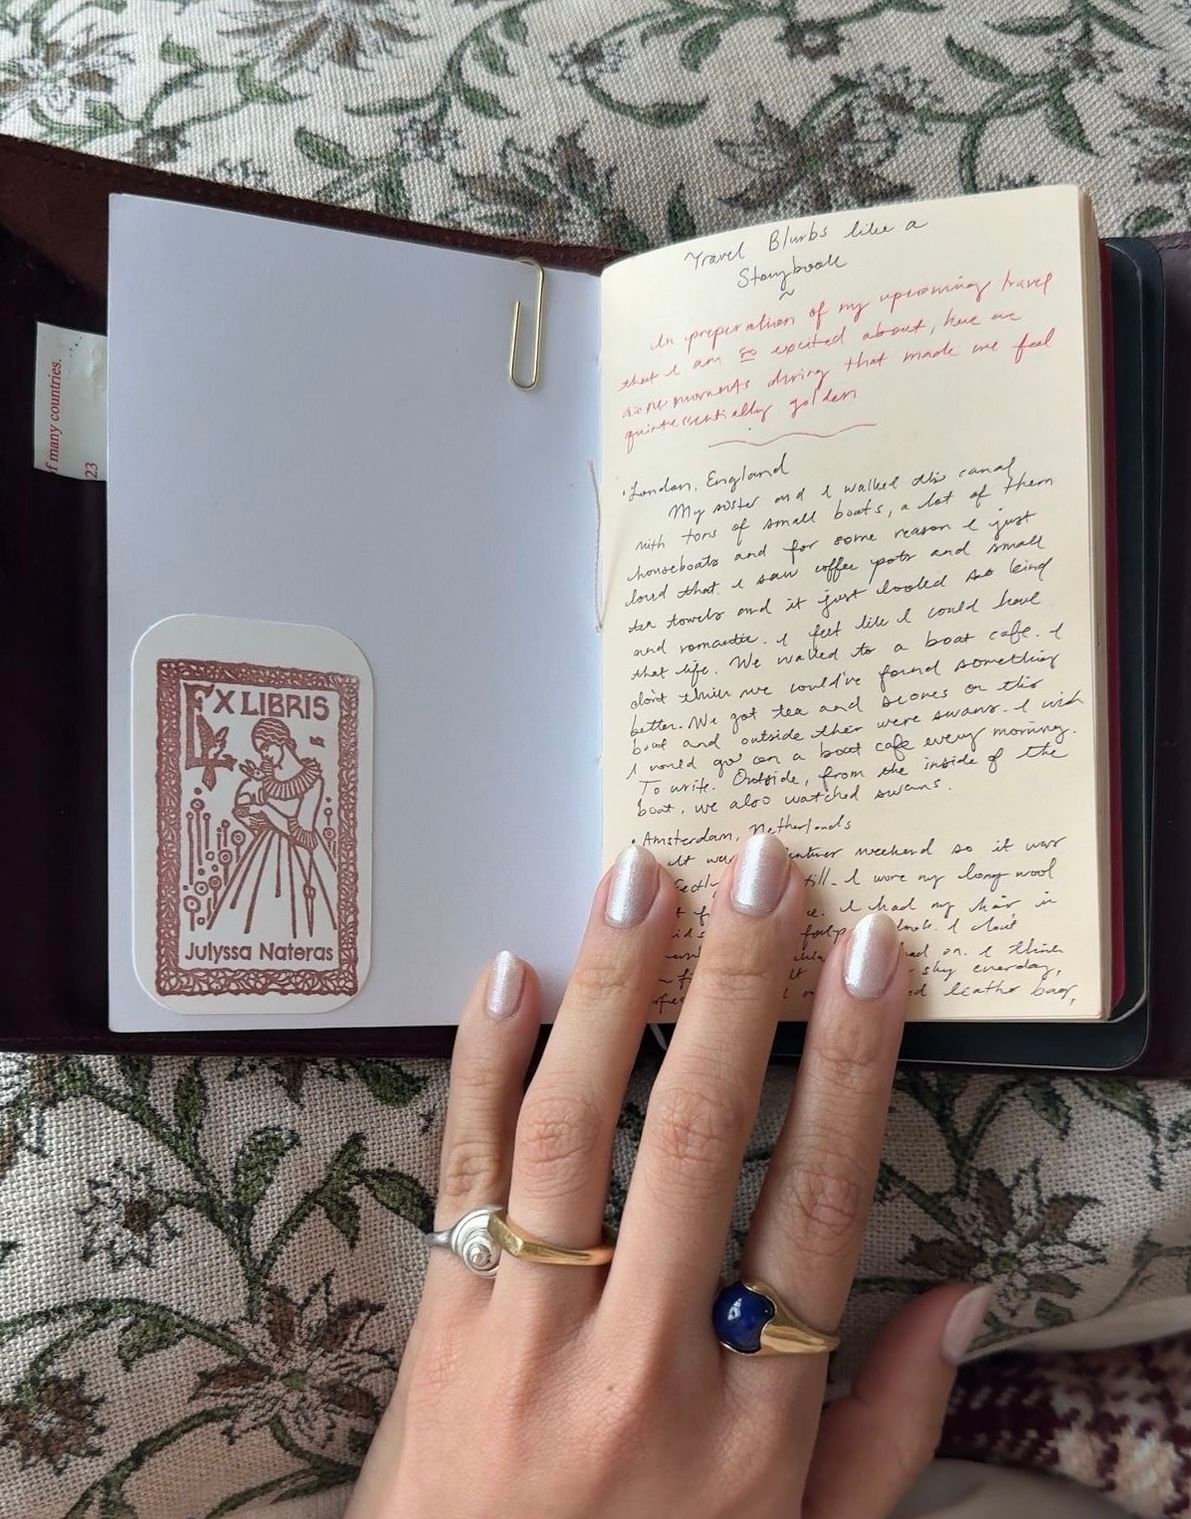 f many countries.
23
EX LIBRIS
Julyssa Nateras
Travel Blurbs like a
Storybook
~
In preparation of my upcoming travel
that I am so excited about, here are
some moments during that made me feel
quintessentially golden
• London, England
My sister and I walked this canal
with tons of small boats, a lot of them
houseboats and for some reason I just
loved that. I saw coffee pots and small
tea towels and it just looked so kind
and romantic. I felt like I could have
that life. We walked to a boat cafe. I
don't think we could've found something
better. We got tea and scones on this
boat and outside ther were swans. I wish
I would go on a boat cafe every morning.
To write. Outside, from the inside of the
boat, we also watched swans.
• Amsterdam, Netherlands
It was weekend so it was
till. I wore my long wool
I had my hair in
I don't
on. I think
sky everyday,
leather bag,